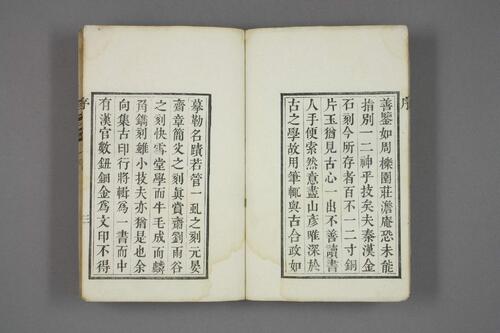 序
善鑒如周櫟園莊澹庵恐未能
指別一二神乎技矣夫秦漢金
石刻今所存者百不一二寸銅
片玉猶見古心一出不善讀書
人手便索然意盡山彥唯深於
古之學故用筆輒與古合政如
摹勒名蹟若管一虬之刻元晏
齋章簡父之刻眞賞齋劉雨谷
之刻快雪堂學而牛毛成而麟
角鐫刻雖小技夫亦猶是也余
向集古印行將輯爲一書而中
有漢官數鈕鉬金爲文印不得
序
三